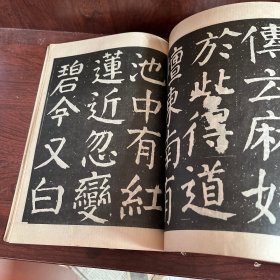 傳云麻姑
於此得道
壇東南有
池中有紅
蓮近忽變
碧今又白